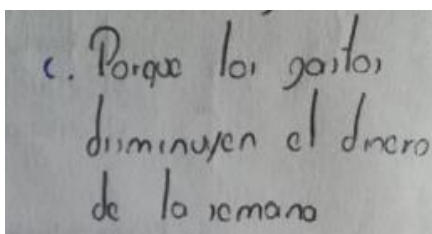 c. Porque los gastos
disminuyen el dinero
de la semana